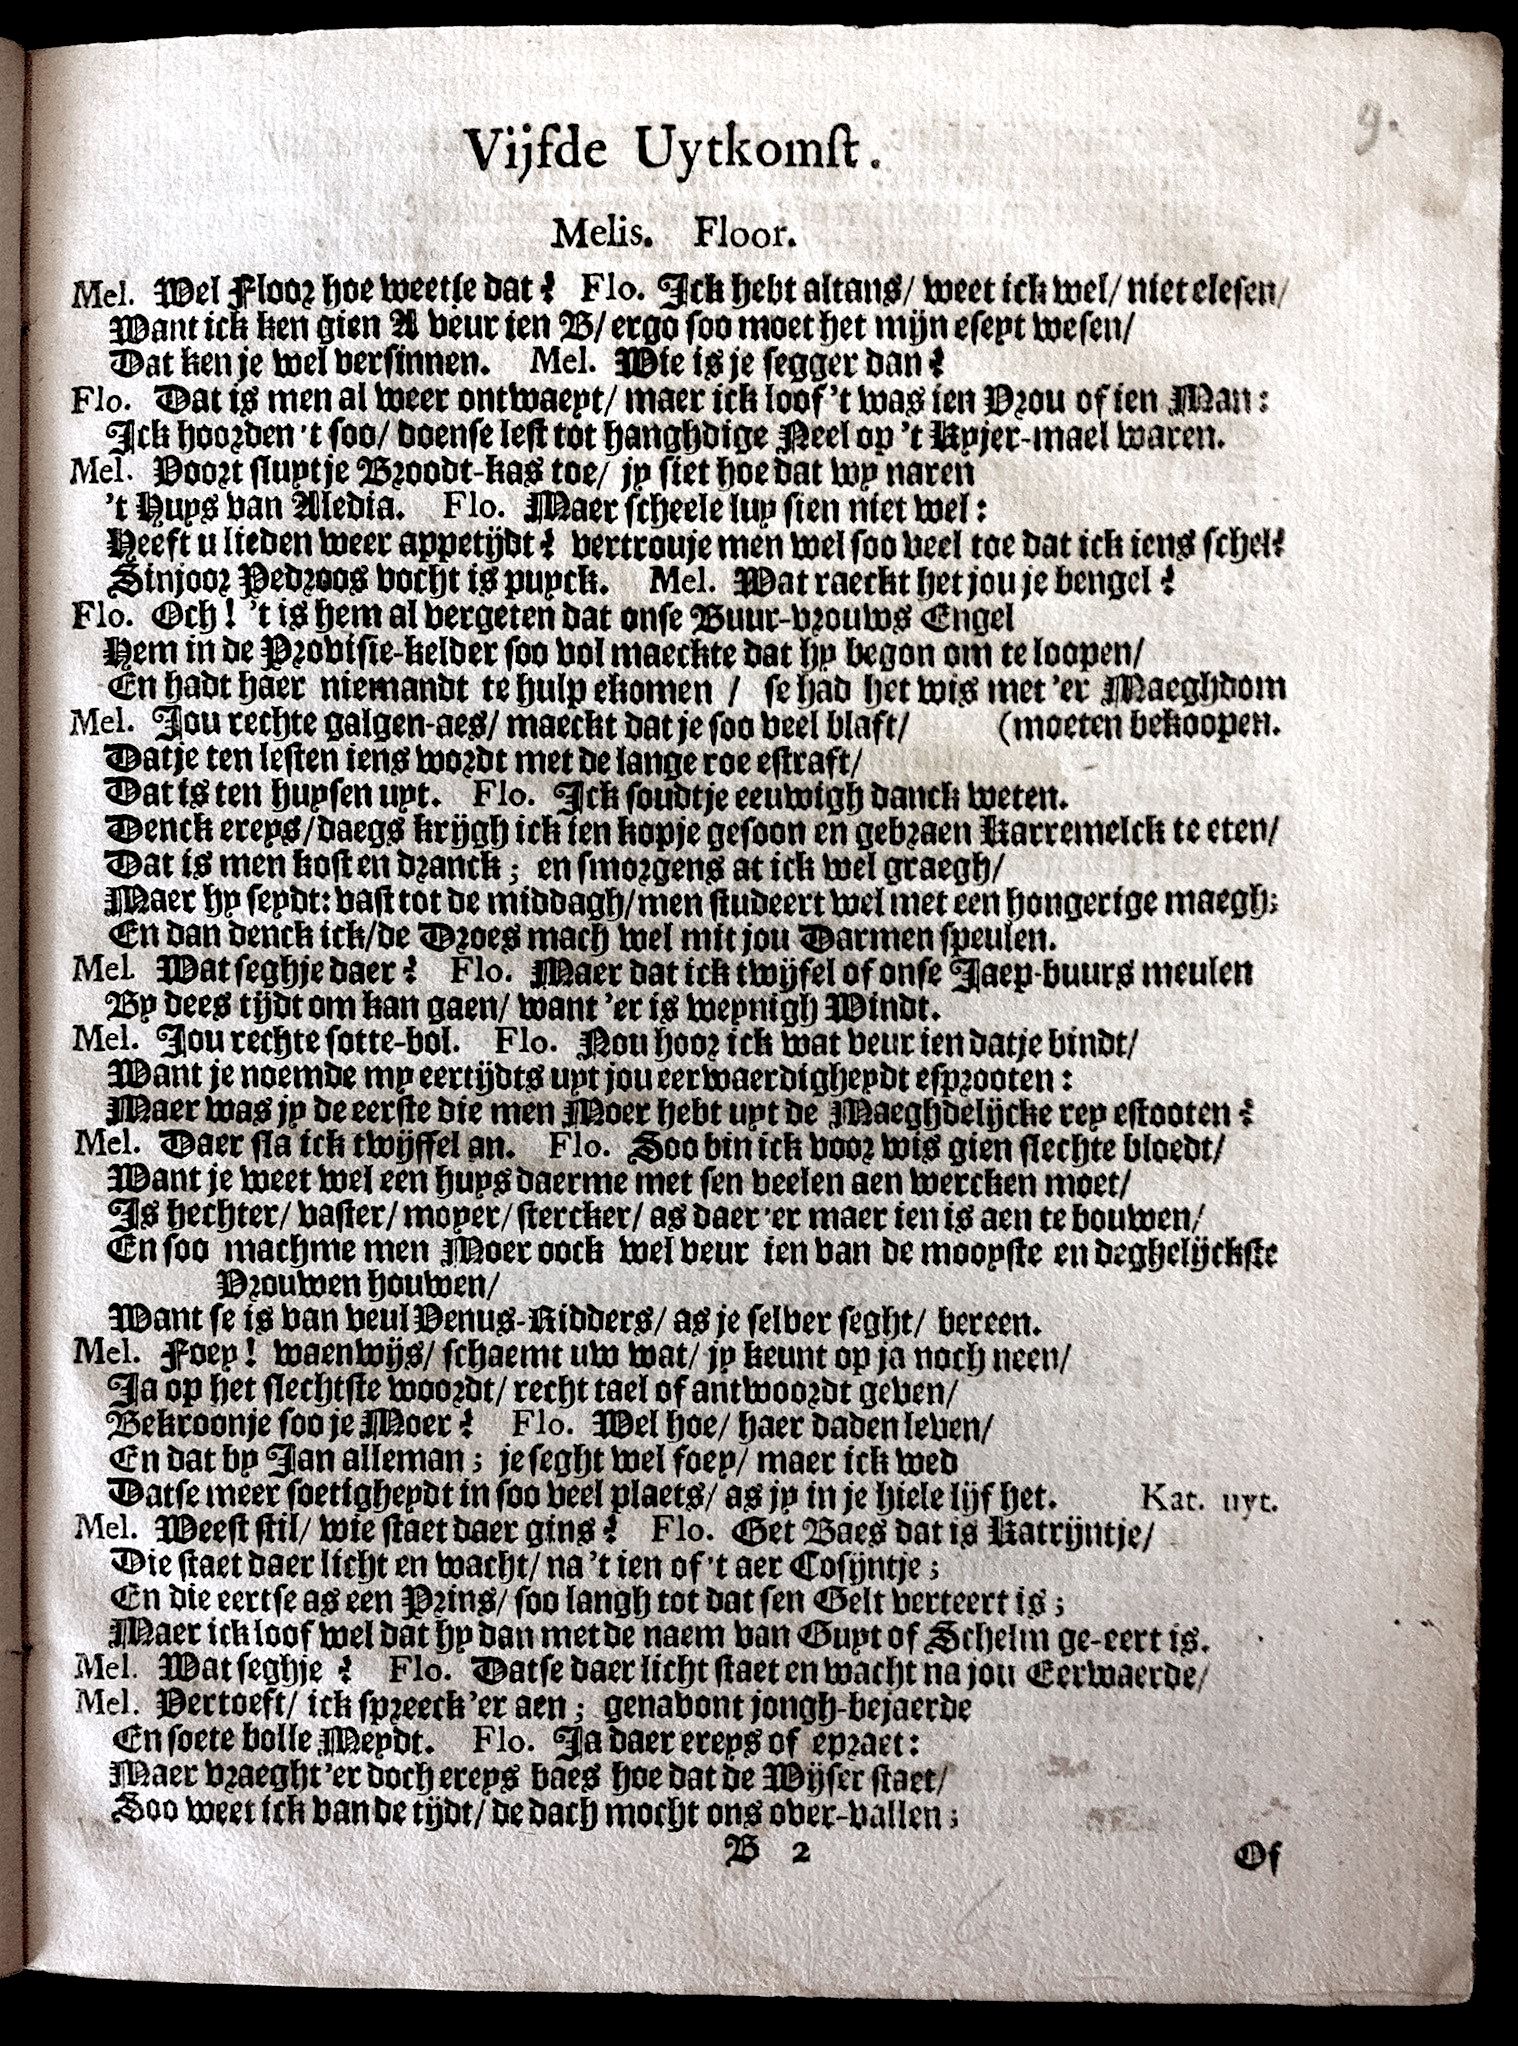 9.
Vijfde Uytkomst.
Melis. Floor.
Mel. Wel Floor hoe weetje dat? Flo. Ick hebt altans/ weet ick wel/ niet elesen/
Want ick ken gien A veur ien B/ ergo soo moet het mijn eseyt wesen/
Dat ken je wel versinnen. Mel. Wie is je segger dan?
Flo. Dat is men al weer ontwaeyt/ maer ick loof 't was ien Vrou of ien Man:
Ick hoorden 't soo/ doense lest tot hanghdige Neel op 't Kyjer-mael waren.
Mel. Voort sluytje Broodt-kas toe/ jy siet hoe dat wy naren
't Huys van Aledia. Flo. Maer scheele luy sien niet wel:
Heeft u lieden weer appetijdt? vertrouje men wel soo veel toe dat ick iens schel?
Sinjoor Pedroos vocht is puyck. Mel. Wat raeckt het jou je bengel?
Flo. Och! 't is hem al vergeten dat onse Buur-vrouws Engel
Hem in de Provisie-kelder soo vol maeckte dat hy begon om te loopen/
En hadt haer niemandt te hulp ekomen / se had het wis met 'er Maeghdom
Mel. Jou rechte galgen-aes/ maeckt dat je soo veel blaft/ (moeten bekoopen.
Datje ten lesten iens wordt met de lange roe estraft/
Dat is ten huysen uyt. Flo. Ick soudtje eeuwigh danck weten.
Denck ereys/ daegs krijgh ick ien kopje gesoon en gebraen Karremelck te eten/
Dat is men kost en dranck; en smorgens at ick wel graegh/
Maer hy seydt: vast tot de middagh/ men studeert wel met een hongerige maegh;
En dan denck ick/ de Droes mach wel mit jou Darmen speulen.
Mel. Wat seghje daer? Flo. Maer dat ick twijfel of onse Jaep-buurs meulen
By dees tijdt om kan gaen/ want 'er is weynigh Windt.
Mel. Jou rechte sotte-bol. Flo. Nou hoor ick wat veur ien datje bindt/
Want je noemde my eertijdts uyt jou eerwaerdigheydt esprooten:
Maer was jy de eerste die men Moer hebt uyt de Maeghdelijcke rey estooten?
Mel. Daer sla ick twijffel an. Flo. Soo bin ick voor wis gien slechte bloedt/
Want je weet wel een huys daerme met sen veelen aen wercken moet/
Is hechter/ vaster/ moyer/ stercker/ as daer 'er maer ien is aen te bouwen/
En soo machme men Moer oock wel veur ien van de mooyste en deghelijckste
Vrouwen houwen/
Want se is van veul Venus-Ridders/ as je selver seght/ bereen.
Mel. Foey! waenwijs/ schaemt uw wat/ jy keunt op ja noch neen/
Ja op het slechtste woordt/ recht tael of antwoordt geven/
Bekroonje soo je Moer? Flo. Wel hoe/ haer daden leven/
En dat by Jan alleman; je seght wel foey/ maer ick wed
Datse meer soetigheydt in soo veel plaets/ as jy in je hiele lijf het. Kat. uyt.
Mel. Weest stil/ wie staet daer gins? Flo. Get Baes dat is Katrijntje/
Die staet daer licht en wacht/ na 't ien of 't aer Cosijntje;
En die eertse as een Prins/ soo langh tot dat sen Gelt verteert is;
Maer ick loof wel dat hy dan met de naem van Guyt of Schelm ge-eert is.
Mel. Wat seghje? Flo. Datse daer licht staet en wacht na jou Eerwaerde/
Mel. Vertoeft/ ick spreeck 'er aen; genavont jongh-bejaerde
En soete bolle Meydt. Flo. Ja daer ereys of epraet:
Maer vraeght 'er doch ereys baes hoe dat de Wijser staet/
Soo weet ick van de tijdt/ de dach mocht ons over-vallen;
B 2
Of